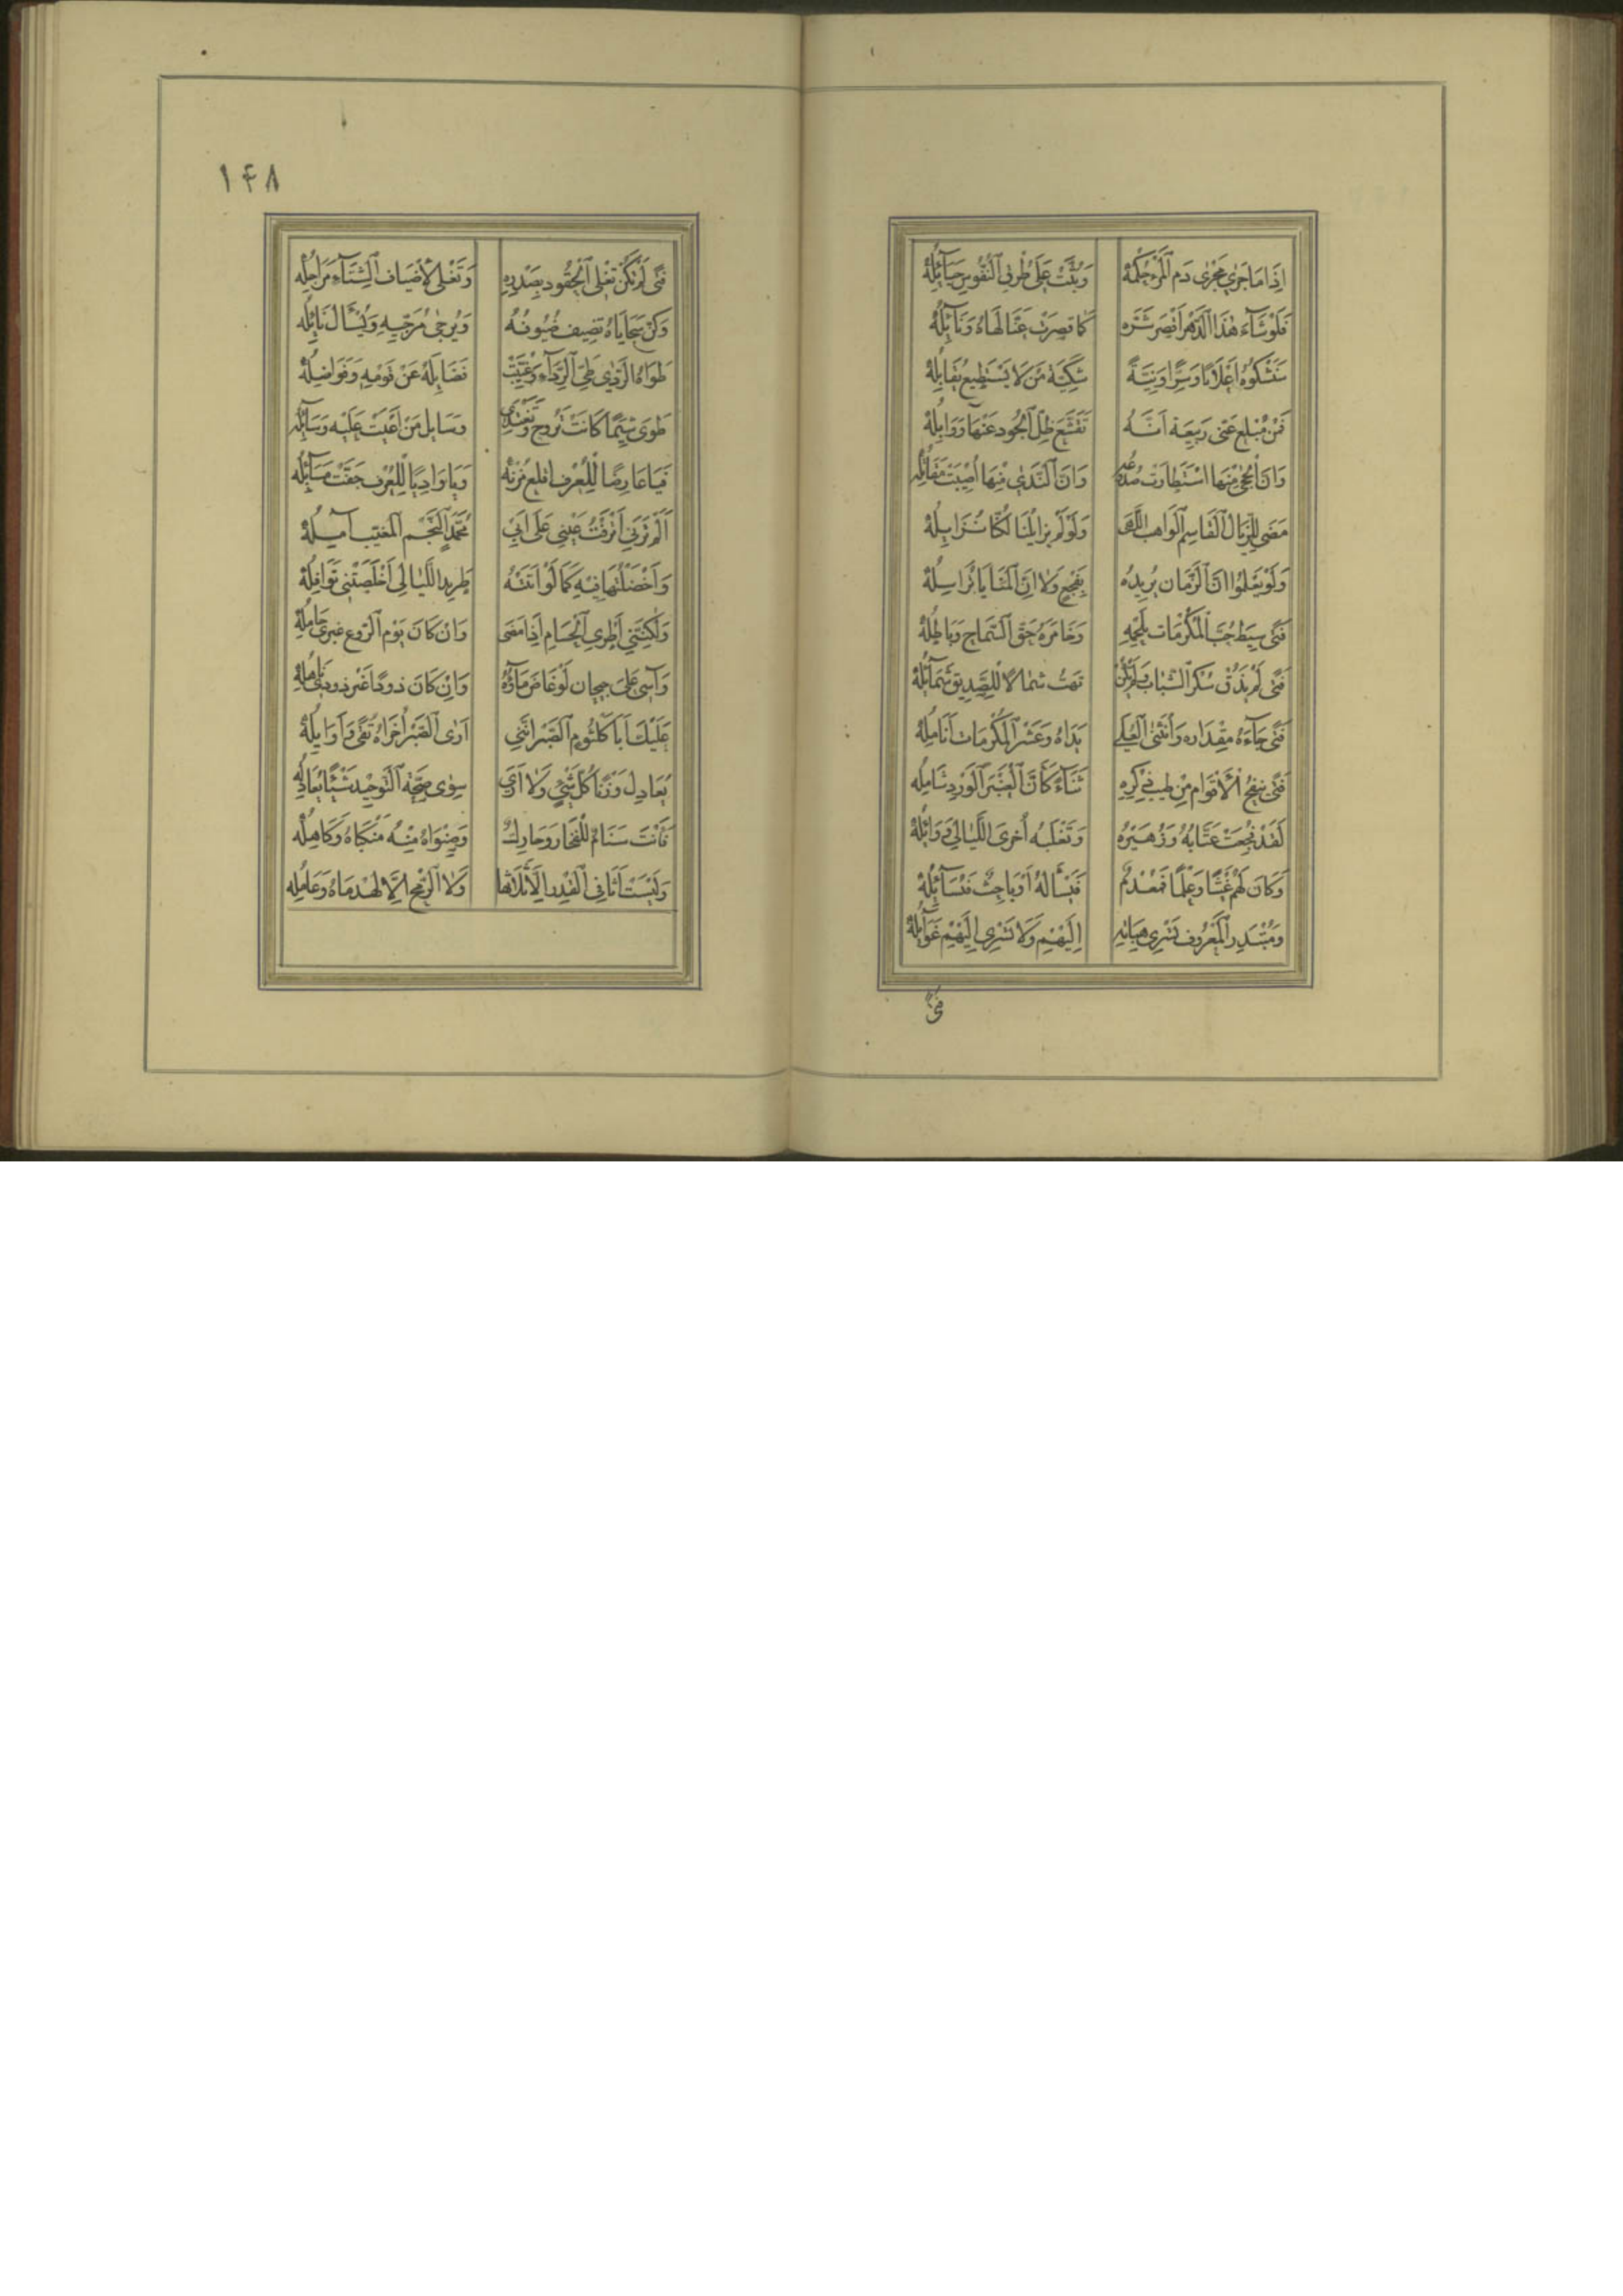 اِذَا مَا جَرٰى مَجْرٰى دَمِ الْمَرْءِ حُكْمُهُ وَبُثَّتْ عَلٰى طُرْقِ النُّفُوسِ حَبَآئِلُهُ
فَلَوْ شَآءَ هٰذَا الدَّهْرُ اَقْصَرَ شَرُّهُ كَمَا قَصُرَتْ عَنَّا لَهَاهُ وَنَآئِلُهُ
سَنَشْكُوهُ اِعْلَانًا وَسِرًّا وَنِيَّةً شَكِيَّةَ مَنْ لَا يَسْتَطِيعُ يُقَاتِلُهُ
فَمَنْ مُبْلِغٌ عَنِّى رَبِيعَةَ اَنَّهُ تَقَشَّعَ طَلُّ الْجُودِ عَنْهَا وَوَابِلُهُ
وَاَنَّ الْحِجٰى مِنْهَا اسْتَطَارَتْ صُدُوعُهُ وَاَنَّ النَّدٰى مِنْهَا اُصِيبَتْ مَقَاتِلُهُ
مَضٰى لِلزِّيَالِ الْقَاسِمُ الْوَاهِبُ اللُّهٰى وَلَوْ لَمْ يُزَايِلْنَا لَكُنَّا نُزَايِلُهُ
وَلَوْ يَعْلَمُوا اَنَّ الزَّمَانَ يُرِيدُهُ بِفَجْعٍ وَلَا اَنَّ الْمَنَايَا تُرَاسِلُهُ
فَتًى سِيطَ حُبُّ الْمَكْرُمَاتِ بِلَحْمِهِ وَخَامَرَهُ حَقُّ السَّمَاحِ وَبَاطِلُهُ
فَتًى لَمْ يَذُقْ سُكْرَ الشَّبَابِ وَلَمْ تَكُنْ تَهُبُّ شَمَالًا لِلصَّدِيقِ شَمَآئِلُهُ
فَتًى جَآءَهُ مِقْدَارُهُ وَاثْنَتَا الْعُلٰى يَدَاهُ وَعَشْرُ الْمَكْرُمَاتِ اَنَامِلُهُ
فَتًى يَنْفَحُ الْاَقْوَامَ مِنْ طِيبِ ذِكْرِهِ ثَنَآءً كَاَنَّ الْعَنْبَرَ الْوَرْدَ شَامِلُهُ
لَقَدْ فُجِعَتْ عَتَّابُهُ وَزُهَيْرُهُ وَتَغْلِبُهُ اُخْرَى اللَّيَالِى وَوَآئِلُهُ
وَكَانَ لَهُمْ غَيْثًا وَعِلْمًا فَمُعْدِمٌ فَيَسْأَلُهُ اَوْ بَاحِثٌ فَيُسَآئِلُهُ
وَمُبْتَدِرُ الْمَعْرُوفِ تَسْرِى هِبَاتُهُ اِلَيْهِمْ وَلَا تَسْرِى اِلَيْهِمْ غَوَآئِلُهُ
فَتًى
۱۴۸
فَتًى لَمْ تَكُنْ تَغْلِى الْحُقُودُ بِصَدْرِهِ وَتَغْلِى لِاَضْيَافِ الشِّتَآءِ مَرَاجِلُهُ
وَكُنَّ سَجَايَاهُ تُضِيفُ ضُيُوفَهُ وَيُرْجٰى مُرَجِّيهِ وَيُسْأَلُ نَآئِلُهُ
طَوَاهُ الرَّدٰى طَىَّ الرِّدَآءِ وَغُيِّبَتْ فَضَآئِلُهُ عَنْ قَوْمِهِ وَفَوَاضِلُهُ
طَوٰى شِيَمًا كَانَتْ تَرُوحُ وَتَغْتَدِى وَسَآئِلَ مَنْ اَعْيَتْ عَلَيْهِ وَسَآئِلُهُ
فَيَا عَارِضًا لِلْعُرْفِ اَقْلَعَ مُزْنُهُ وَيَا وَادِيًا لِلْعُرْفِ جَفَّتْ مَسَآئِلُهُ
اَلَمْ تَرَنِى اَنْزَفْتُ عَيْنِى عَلٰى اَبِى مُحَمَّدٍ النَّجْمِ الْمُغَيَّبِ آمِلُهُ
وَاَخْضَلْتُهَا فِيهِ كَمَا لَوْ اَتَيْتُهُ طَرِيدَ اللَّيَالِى اَخْضَلَتْنِى نَوَافِلُهُ
وَلٰكِنَّنِى اُطْرِى الْحُسَامَ اِذَا مَضٰى وَاِنْ كَانَ يَوْمَ الرَّوْعِ غَيْرِى حَامِلُهُ
وَآسٰى عَلٰى جَيْحَانَ لَوْ غَاضَ مَآؤُهُ وَاِنْ كَانَ ذَوْدًا غَيْرَ ذَوْدِى نَاهِلُهُ
عَلَيْكَ اَبَا كُلْثُومٍ الصَّبْرَ اِنَّنِى اَرٰى الصَّبْرَ اُخْرَاهُ تُقًى وَاَوَآئِلُهُ
يُعَادِلُ وَزْنًا كُلَّ شَىْءٍ وَلَا اَرٰى سِوٰى صِحَّةِ التَّوْحِيدِ شَيْئًا يُعَادِلُهُ
فَاَنْتَ سَنَامٌ لِلْفَخَارِ وَحَارِكٌ وَصِنْوَاهُ مِنْهُ مَنْكَبَاهُ وَكَاهِلُهُ
وَلَيْسَتْ اَثَافِى الْقِدْرِ اِلَّا ثَلَاثُهَا وَلَا الرُّمْحُ اِلَّا لَهْذَمَاهُ وَعَامِلُهُ